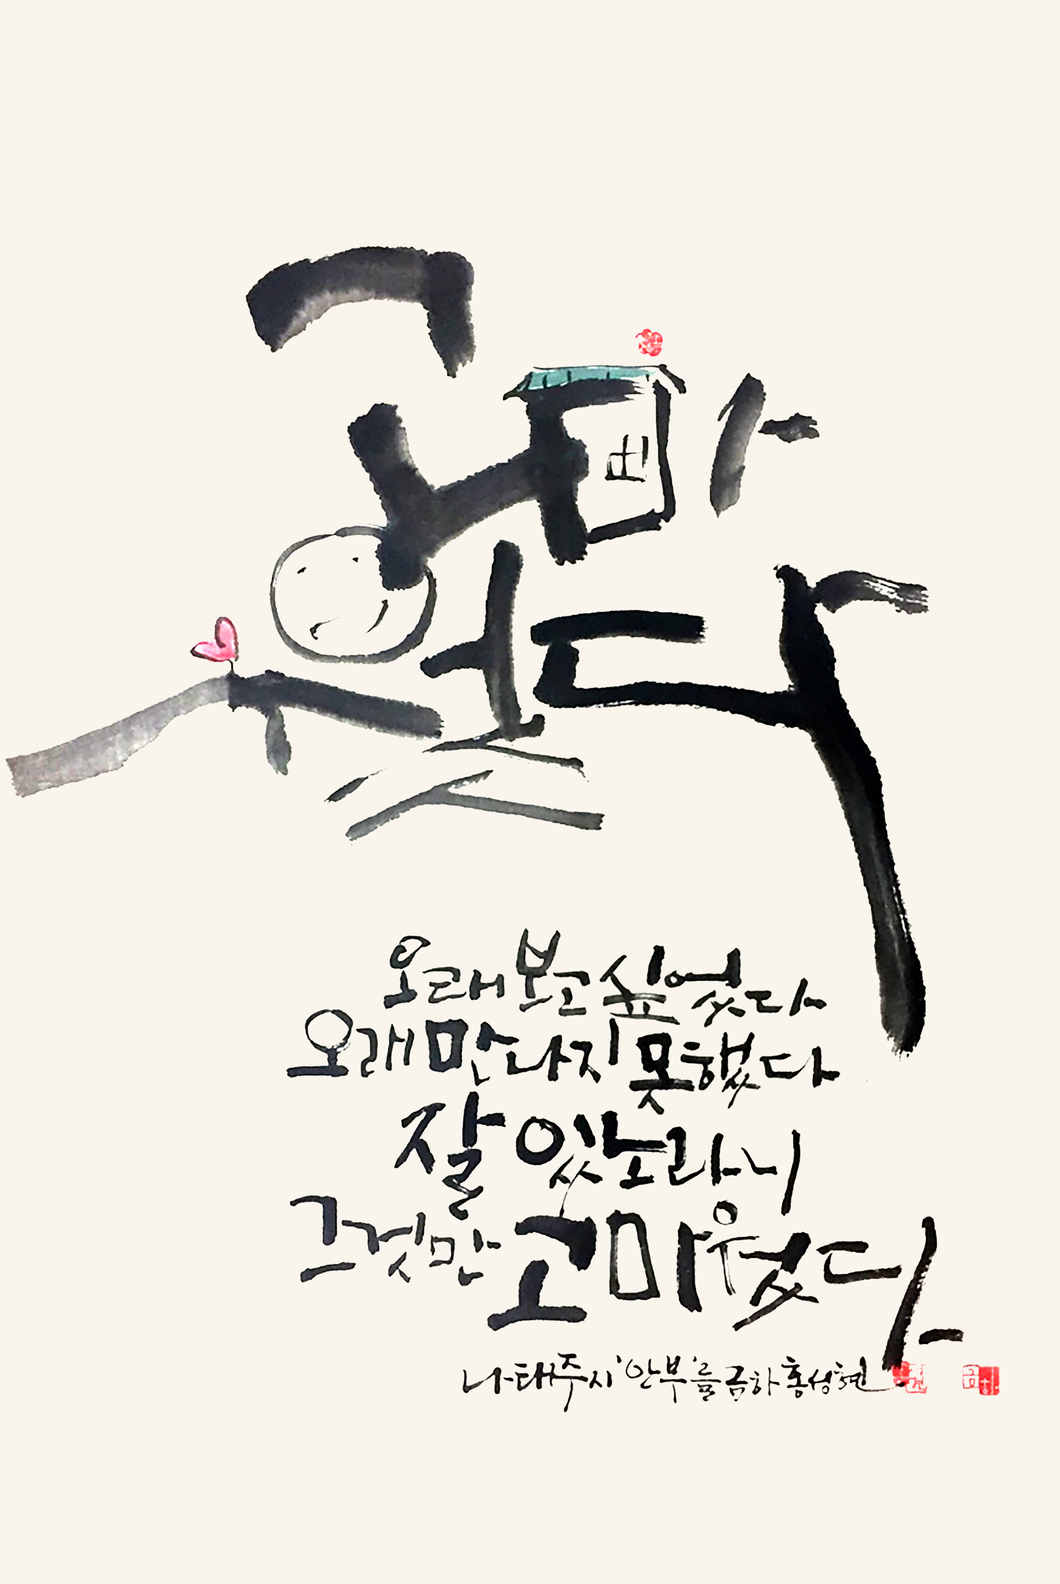 고마
웠다
오래 보고 싶었다
오래 만나지 못했다
잘 있노라니
그것만 고마웠다
나태주시 '안부'를 금하 홍성현